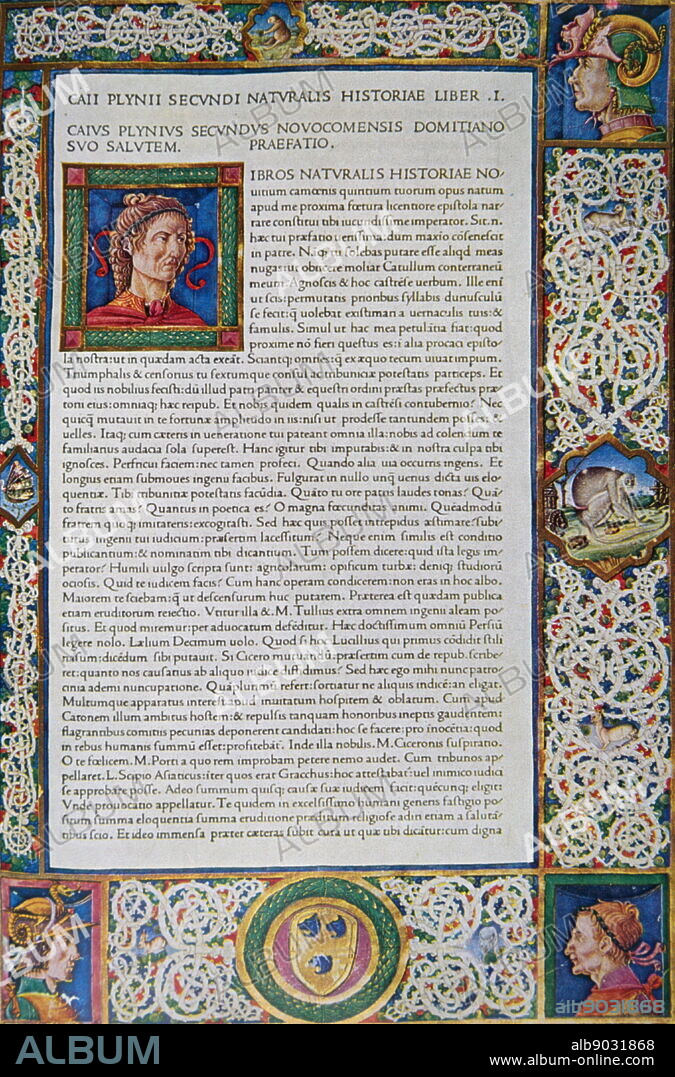 CAII PLYNII SECVNDI NATVRALIS HISTORIAE LIBER .I.
CAIVS PLYNIVS SECVNDVS NOVOCOMENSIS DOMITIANO
SVO SALVTEM. PRAEFATIO.
IBROS NATVRALIS HISTORIAE NO/
uitium camœnis quiritium tuorum opus natum
apud me proxima fœtura licentiore epistola nar/
rare constitui tibi iucundissime imperator. Sit.n.
hæc tui præfatio uerissima:dum maxio cōsenescit
in patre. Nanq; tu solebas putare esse aliqd meas
nugas:ut obiicere moliar Catullum conterraneū
meum. Agnoscis & hoc castrēse uerbum. Ille eni
ut scis:permutatis prioribus syllabis
se fecit:q uolebat existimari a uernaculis tuis:&
famulis. Simul ut hac mea petulātia fiat:quod
proxime nō fieri questus es:i alia procaci episto/
la nostra:ut in quædam acta exeāt. Sciantq; omnes:q ex æquo tecum uiuat impium.
Triumphalis & censorius tu sextumque consul ac tribuniciæ potestatis particeps. Et
quod iis nobilius fecisti:dū illud patri pariter & equestri ordini præstas præfectus præ/
torii eius:omniaq; hæc repub. Et nobis quidem qualis in castrēsi contubernio? Nec
quicq mutauit in te fortunæ amplitudo in iis:nisi ut prodesse tantundem posses: &
uelles. Itaq; cum cæteris in ueneratione tui pateant omnia illa:nobis ad colendum te
familiarius audacia sola superest. Hanc igitur tibi imputabis:& in nostra culpa tibi
ignosces. Perfricui faciem:nec tamen profeci. Quando alia uia occurris ingens. Et
longius etiam submoues ingenii facibus. Fulgurat in nullo unq uerius dicta uis elo/
quentiæ. Tibi tribunitiæ potestatis facūdia. Quāto tu ore patris laudes tonas? Quā/
to fratris amas? Quantus in poetica es? O magna fœcunditas animi. Quēadmodū
fratrem quoq; imitareris:excogitasti. Sed hæc quis posset intrepidus æstimare:subi/
turus ingenii tui iudicium:præsertim lacessitum? Neque enim similis est conditio
publicantium:& nominatim tibi dicantium. Tum possem dicere:quid ista legis im/
perator? Humili uulgo scripta sunt: agricolarum: opificum turbæ: deniq; studiorū
ociosis. Quid te iudicem facis? Cum hanc operam condicerem:non eras in hoc albo.
Maiorem te sciebam:q ut descensurum huc putarem. Præterea est quædam publica
etiam eruditorum reiectio. Vtitur illa &.M. Tullius extra omnem ingenii aleam po/
situs. Et quod miremur:per aduocatum defēditur. Hæc doctissimum omniū Persiū
legere nolo. Lælium Decimum uolo. Quod si hoc Lucillius qui primus cōdidit stili
nasum:dicēdum sibi putauit. Si Cicero mutuandū:præsertim cum de repub. scribe/
ret:quanto nos causatius ab aliquo iudice defēdimus? Sed hæc ego mihi nunc patro/
cinia ademi nuncupatione. Quaplurimū refert:sortiatur ne aliquis iudicē:an eligat.
Multumque apparatus interest apud inuitatum hospitem & oblatum. Cum apud
Catonem illum ambitus hostem:& repulsis tanquam honoribus ineptis gaudentem:
flagrantibus comitiis pecunias deponerent candidati:hoc se facere:pro inocētia:quod
in rebus humanis summū esset:profitebāt. Inde illa nobilis.M. Ciceronis suspiratio.
O te fœlicem.M. Porti a quo rem improbam petere nemo audet. Cum tribunos ap/
pellaret.L. Scipio Asiaticus:iter quos erat Gracchus:hoc attestabat:uel inimico iudici
se approbari posse. Adeo summum quisq; causæ suæ iudicem facit:quēcunq; eligit:
Vnde prouocatio appellatur. Te quidem in excelsissimo humani generis fastigio po/
situm summa eloquentia summa eruditione præditum religiose adiri etiam a salutā/
tibus scio. Et ideo immensa præter cæteras subit cura ut quæ tibi dicātur:cum digna
ALBUM
alb9031868
ALBUM
alb9031868
www.album-online.com